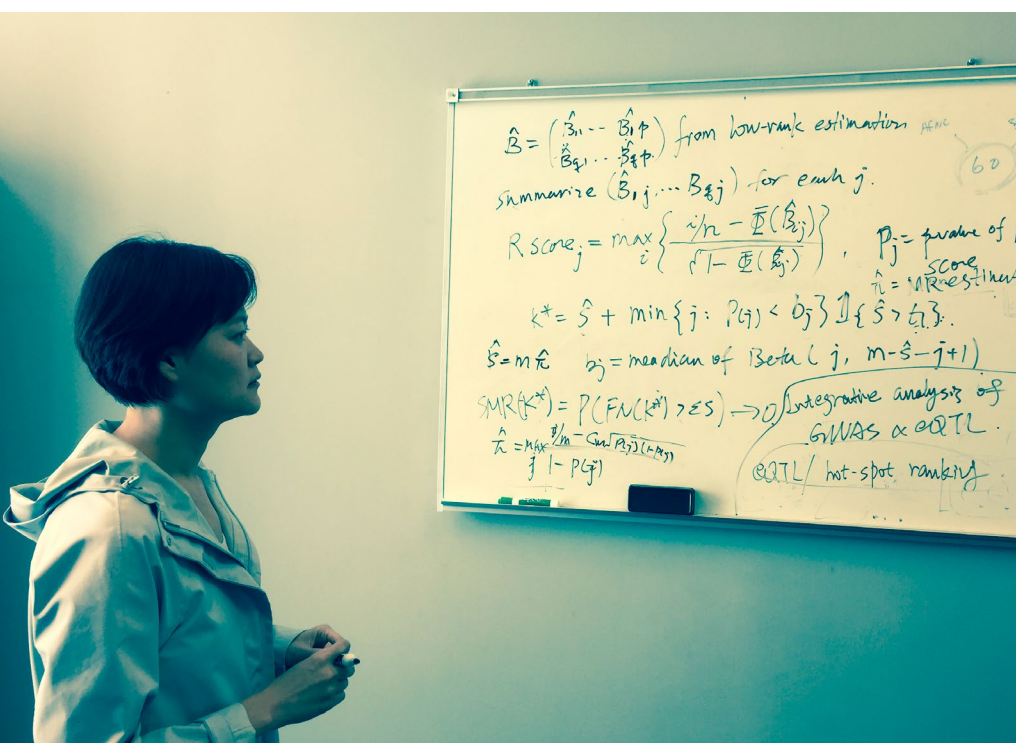 B̂ = ( B̂₁₁ ... B̂₁p
B̂q₁ ... B̂qp ) from low-rank estimation
60
summarize (B̂₁j, ... Bqj) for each j.
R scoreⱼ = max i { i/n − Φ̄(B̂ij) / √1 − Φ̄(B̂ij) } , Pj = pvalue of
score
π̂ = MR estimat
k* = ŝ + min{j: P(j) < bj} 1{ŝ > t1}.
ŝ = mπ̂ bj = meadian of Beta( j, m-ŝ-j+1)
SMR(k*) = P(FN(k*) > εs) → 0
Integrative analysis of
GWAS & eQTL.
π̂ = max j j/m − Cm√P(j)(1-P(j)) / 1 − P(j)
eQTL/ hot-spot ranking